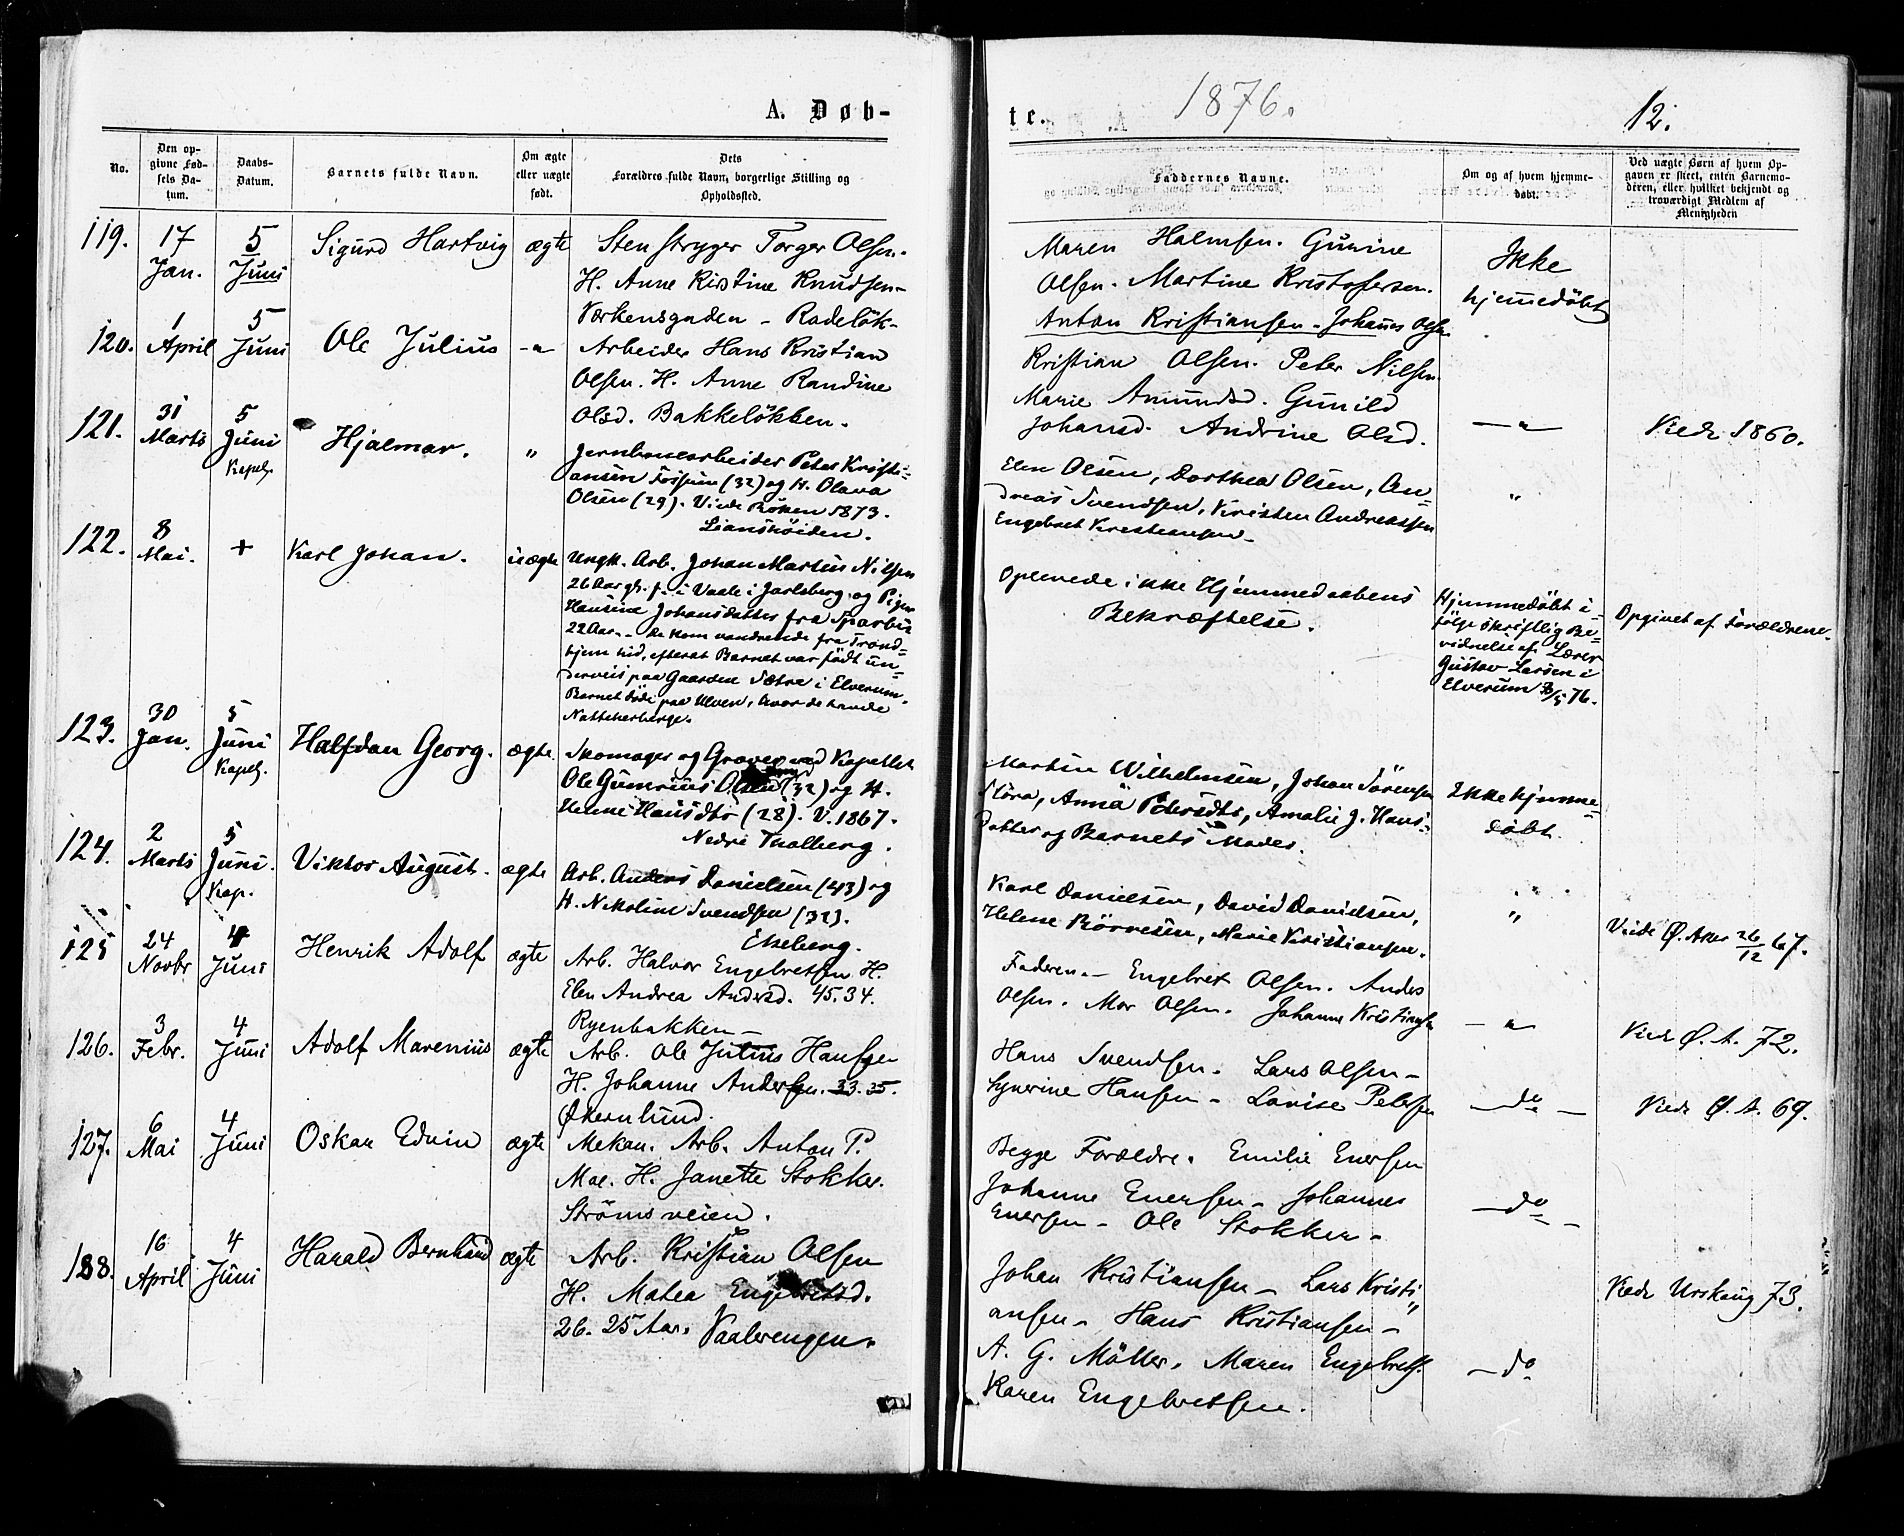 A. Døb-
No.
Den op-
givne Fød-
sels Da-
tum.
Daabs-
Datum.
Barnets fulde Navn.
Om ægte
eller uægte
født.
Dets
Forældres fulde Navn, borgerlige Stilling og
Opholdssted.
119. 17 Jan. 5 Juni Sigurd Hartvig ægte
Stenstryger Torger Olsen.
H. Anne Kirstine Knudsen-
Værkensgaden - Rodeløk-
120. 1 April 5 Juni Ole Julius -"-
Arbeider Hans Kristian
Olsen. H. Anne Randine
Olsd. Bakkeløkken.
121. 31 Marts 5 Juni Kapel. Hjalmar. "
Jernbanearbeider Peter Kristi-
ansen Fossum (32) og H. Olava
Olsen (29). Viede Röken 1873.
122. 8 Mai. + Karl Johan. uægte
Ungk. Arb. Johan Martin Nilsen
26 Aar gl. f. i Vaale i Jarlsberg og Pige
Hansine Johansdatter fra Sparbu
22 Aar. - De kom vandrende fra Trond-
hjem hid, efterat Barnet var født un-
derveis paa Gaarden Sætre i Elverum.
Barnet døde paa Ulven, hvor de havde
Natteherberge.
123. 30 Jan. 5 Juni Kapel. Halfdan Georg. ægte
Skomager og Graver ved Kapellet
Ole Gunerius Olsen (32) og H.
Hansdtr (28). V. 1867.
Nedre Thalberg.
124. 2 Marts 5 Juni. Kap. Viktor August. ægte
Arb. Anders Danielsen (43) og
H. Nikoline Svendsen (32).
Ekeberg.
125 24 Novbr 4 Juni Henrik Adolf ægte
Arb. Halvor Engebretsen H.
Elen Andrea Andersd. 45. 34.
Ryenbakken -
126. 3 Febr. 4 Juni Adolf Marenius ægte
Arb. Ole Julius Hansen
H. Johanne Andersen. 33. 35.
Økernlund.
127. 6 Mai 4 Juni Oskar Edvin ægte
Mekan. Arb. Anton P.
Moe. H. Janette Stokke.
Strømsveien.
128. 16 April 4 Juni Harald Bernhard ægte
Arb. Kristian Olsen
H. Matea Engebretsd.
26. 25 Aar. Vaalerengen.
te.
1876.
12.
Faddernes Navne.
Om og af hvem hjemme-
døbt.
Ved uægte Børn af hvem Op-
gaven er skeet, enten Barnemo-
deren, eller hvilket bekjendt og
troværdigt Medlem af
Menigheden
Maren Halmsen. Gurine
Olsen. Martine Kristofersen.
Anton Kristiansen - Johannes Olsen
Ikke
hjemmedöbt
Kristian Olsen. Peter Nilsen.
Marie Amundsd. Gunild
Johansd. Andrine Olsd.
-"- Viede 1860.
Elen Olsen, Dorthea Olsen, An-
dreas Svendsen, Kristen Andreassen
Engebret Kristiansen -
"
Oplevede ikke Hjemmedaabens
Bekræftelse.
Hjemmedöbt i-
følge skriftlig Be-
vidnelse af Lærer
Gustav Larsen i
Elverum
Opgivet af Forældrene.
Martin Wilhelmsen, Johan Sörensen
Anna Petersdtr, Amalie J. Hans-
datter og Barnets Moder.
Ikke hjemme-
døbt.
Karl Danielsen, David Danielsen,
Helene Börresen, Marie Kristiansen.
" Viede Ø. Aker 26/12 67.
Faderen. - Engebret Olsen. Anders
Olsen. Mor Olsen. Johanne Kristiansen
-"- Viede Ø. A. 72.
Hans Svendsen. Lars Olsen -
Hansen - Lovise Petersen
-do- Viede Ø. A. 69.
Begge Forældre. Emilie Enersen
Johanne Enersen - Johannes
Enersen - Ole Stokken -
-do-
Johan Kristiansen - Lars Kristi
ansen - Hans Kristiansen -
A. G. Möller. Maren Engebrets.
Karen Engebretsen.
-do
Viede Urskoug 73.